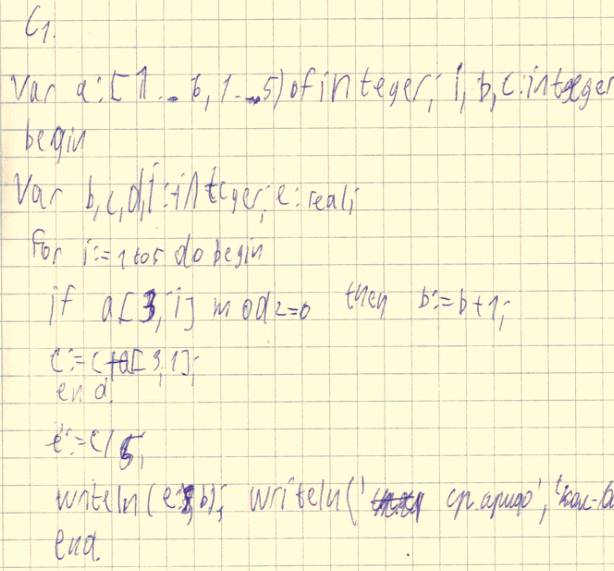 C1.
Var a:[1..6,1..5] of integer; i, b, c:integer
begin
Var b, c, d, i:integer; e:real;
For i:=1 to 5 do begin
if a[3,i] mod 2=0 then b:=b+1;
c:=c+a[3,i];
end.
e:=c/5;
writeln(e:8,b); writeln(' ср.арифр', 'кол-во
end.